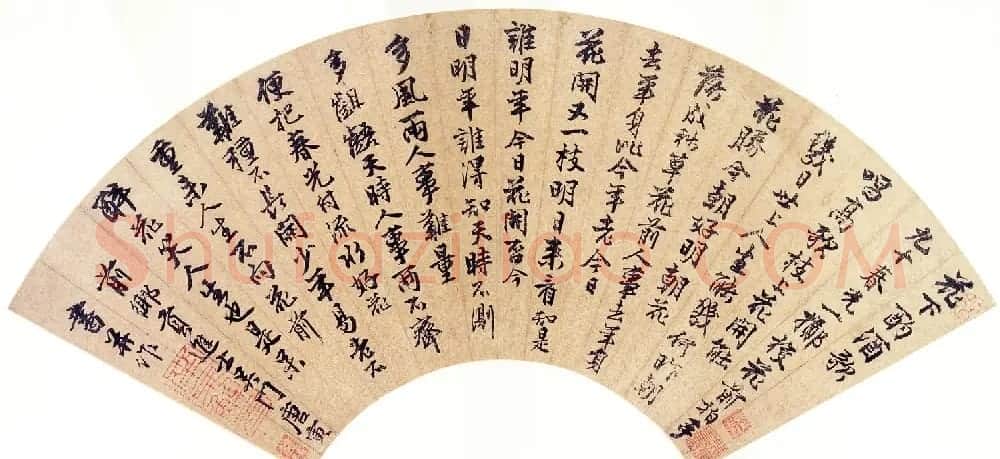 花下酌酒歌
九十春光一擲梭花前拍手
唱高歌枝上花開能
幾日世上人生能幾何昨朝
花勝今朝好明朝花
落成秋草花前人是去年身
去年身比今年老今日
花開又一枝明日來看知是
誰明年今日花開否今
日明年誰得知天時不測
多風雨人事難量
多齟齬天時人事兩不齊
便把春光付流水好花
難種不長開少年易老不
重來人生不向花前
醉花笑人生也是呆
前鄉貢進士吳門唐寅
書舊作
Shufaziliao.COM